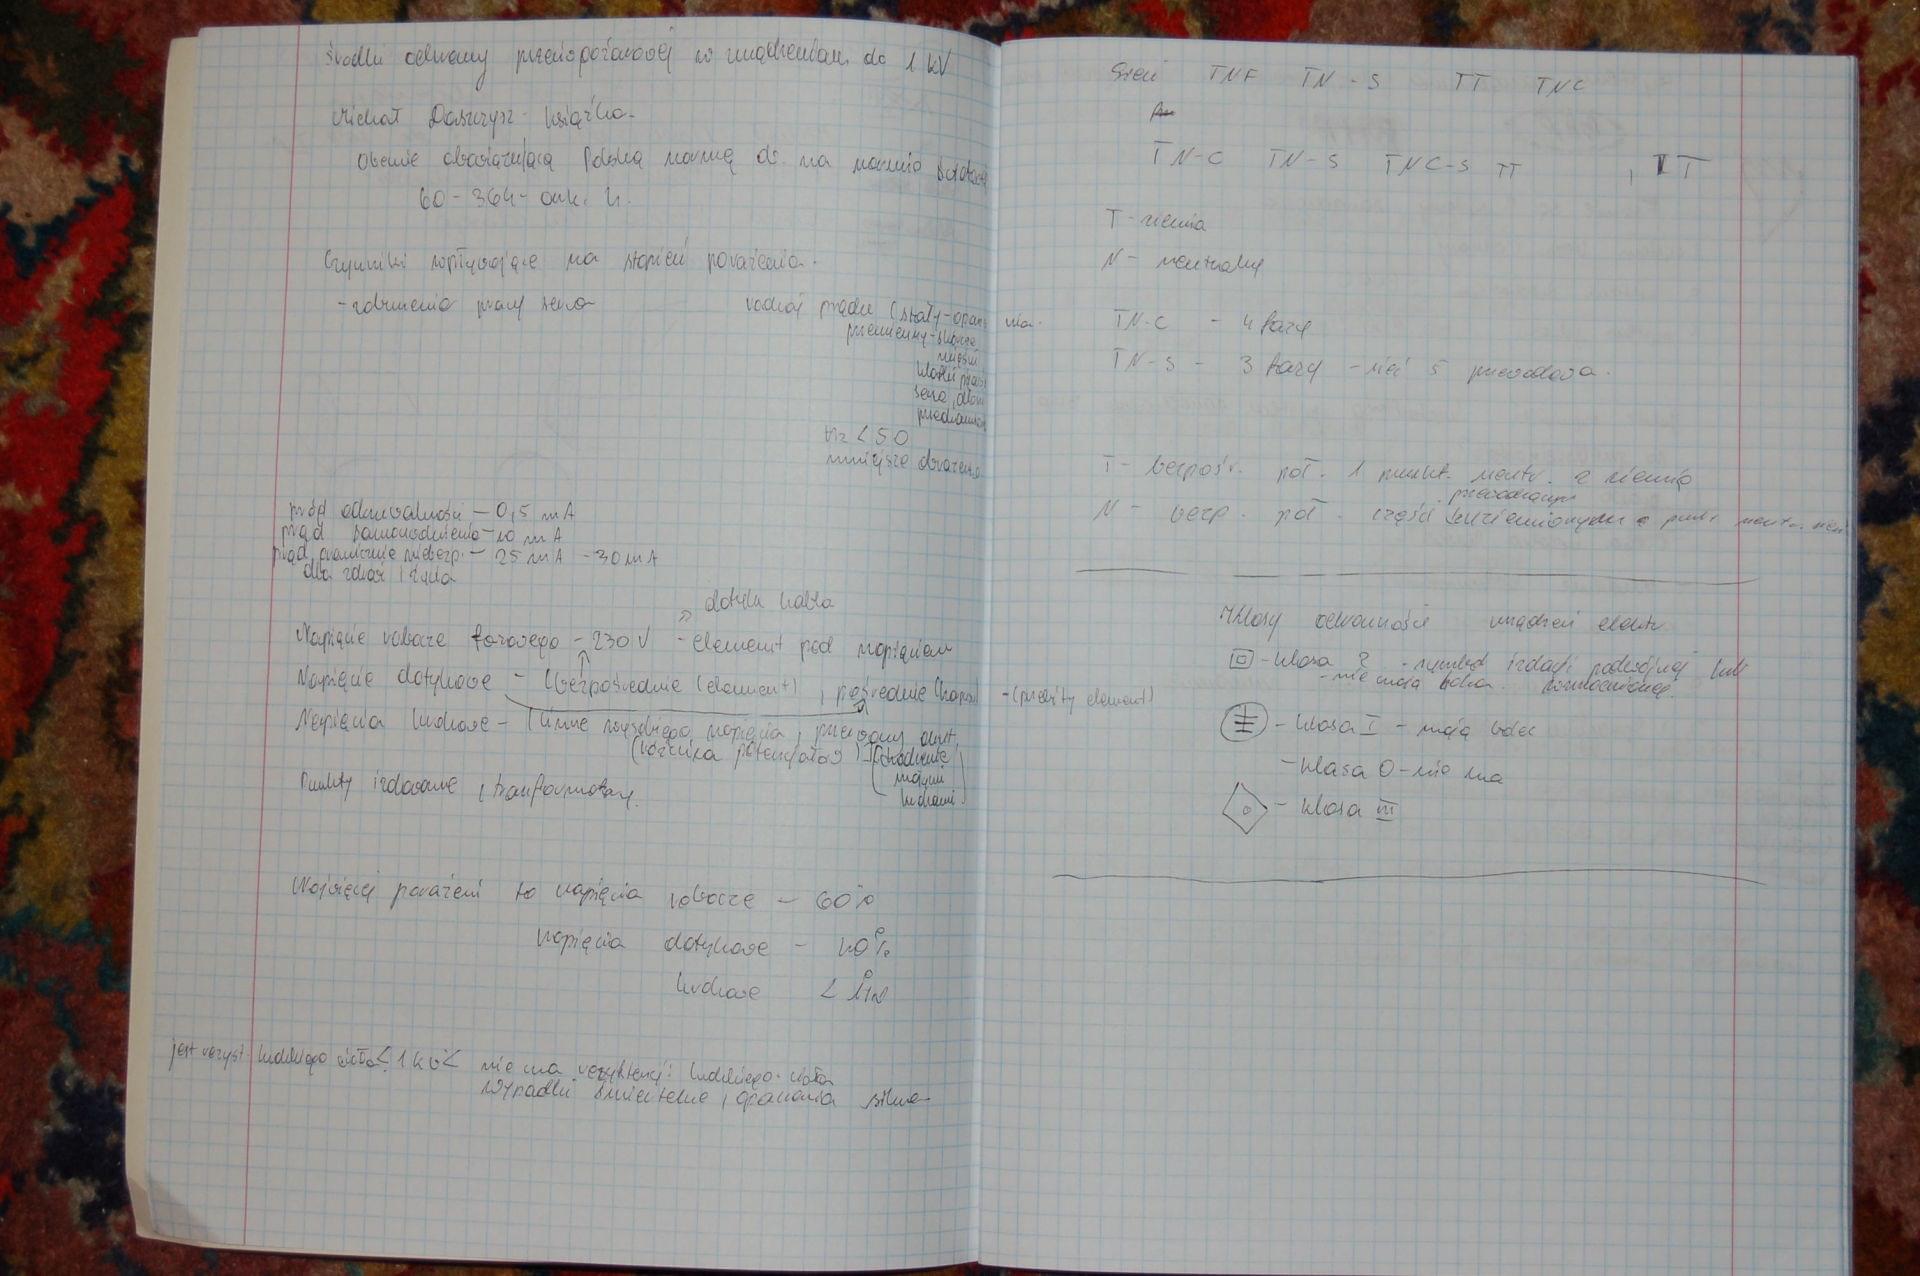 Środki ochrony przeciwporażeniowej w urządzeniach do 1 kV
Michał Daszczysz - książka
Obecnie obowiązująca Polska norma
60-364- ark. 4.
Czynniki wpływające na stopień porażenia.
- zaburzenia pracy serca
rodzaj prądu (stały-oparzenia.
przemienny-skurcze
mięśni
serca,
Hz < 50
mniejsze
prąd odczuwalności - 0,5 mA
prąd samouwolnienia - 10 mA
prąd granicznie niebezp. - 25 mA - 30 mA
dla zdrowia i życia
dotyk kabla
Napięcie robocze fazowego - 230 V - element pod napięciem
Napięcie dotykowe - (bezpośrednie (element), pośrednie - (przebity element)
Napięcia krokowe - (linie wysokiego napięcia,
(różnica potencjałów)
małymi
krokami)
Punkty izolowane, transformatory.
Najwięcej porażeń to napięcia robocze - 60%
napięcia dotykowe - 40%
krokowe < 1%
jest rezyst. ludzkiego ciała < 1 kV < nie ma rezystancji ludzkiego ciała
wypadki śmiertelne, oparzenia silne
Sieci TNF TN-S TT TNC
TN-C TN-S TNC-S TT , IT
T - ziemia
N - neutralny
TN-C - 4 fazy
TN-S - 3 fazy - sieć 5 przewodowa.
T - bezpośr. poł. 1 punkt. neutr. z ziemią
przewodzących
N - bezp. poł. części z punkt neutr. sieci
Klasy ochronności urządzeń elektr.
- klasa 2 - symbol izolacji podwójnej lub
- nie mają bolca wzmocnionej
- klasa I - mają bolec
- klasa 0 - nie ma
- klasa III